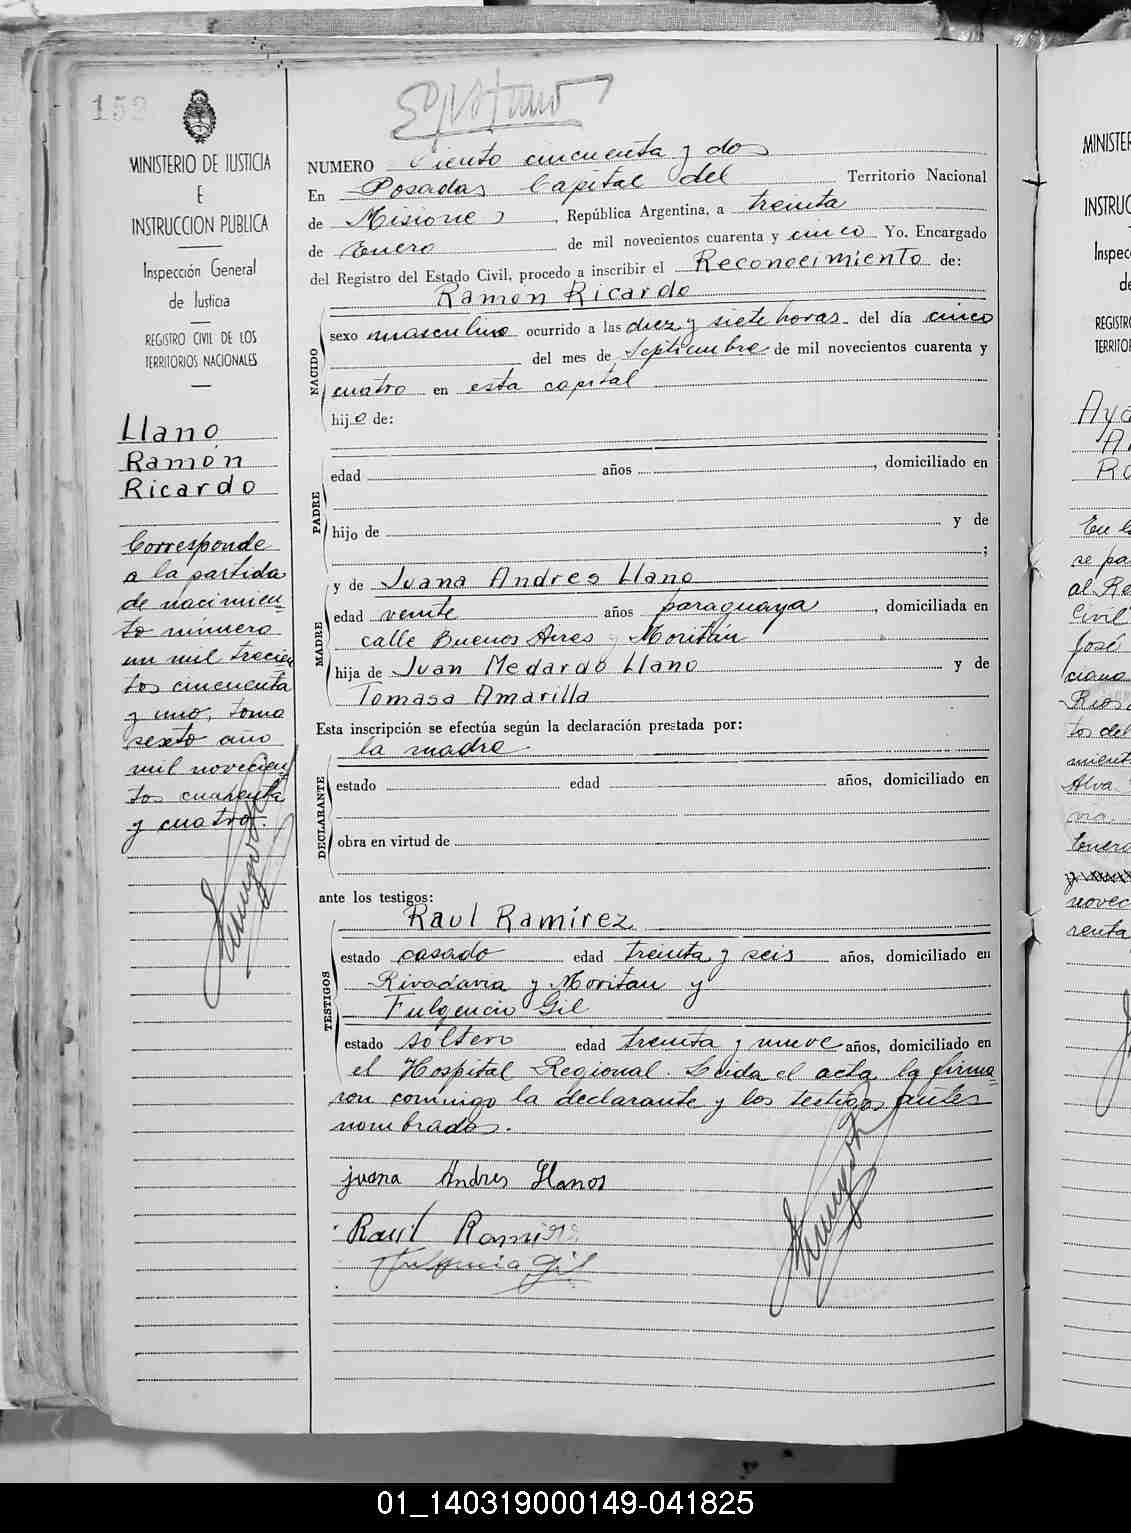 152
MINISTERIO DE JUSTICIA
E
INSTRUCCION PUBLICA
Inspección General
de Justicia
REGISTRO CIVIL DE LOS
TERRITORIOS NACIONALES
Llano
Ramón
Ricardo
Corresponde
a la partida
de nacimien-
to número
un mil trecien
tos cincuenta
y uno, tomo
sexto año
mil novecien
tos cuarenta
y cuatro.
NUMERO Ciento cincuenta y dos
En Posadas Capital del Territorio Nacional
de Misiones, República Argentina, a treinta
de Enero de mil novecientos cuarenta y cinco Yo. Encargado
del Registro del Estado Civil, procedo a inscribir el Reconocimiento de:
Ramón Ricardo
NACIDO
sexo masculino ocurrido a las diez y siete horas del día cinco
del mes de Septiembre de mil novecientos cuarenta y
cuatro en esta capital
hijo de:
PADRE
edad años , domiciliado en
hijo de y de
;
y de Juana Andrea Llano
MADRE
edad veinte años paraguaya, domiciliada en
calle Buenos Aires y Moritán
hija de Juan Medardo Llano y de
Tomasa Amarilla
Esta inscripción se efectúa según la declaración prestada por:
la madre
DECLARANTE
estado edad años, domiciliado en
obra en virtud de
ante los testigos:
Raul Ramírez
TESTIGOS
estado casado edad treinta y seis años, domiciliado en
Rivadavia y Moritan y
Fulgencio Gil
estado soltero edad treinta y nueve años, domiciliado en
el Hospital Regional. Leida el acta la firma-
ron conmigo la declarante y los testigos antes
nombrados.
juana Andres Llanos
Raul Ramirez
Fulgencio Gil
MINISTER
INSTRUC
Inspec
de
REGISTRO
TERRITOR
Aya
Ra
En la
se pa
al Re
Civil
José
ciano
Rios
tos del
mient
Alva
Enero
novec
renta
01_140319000149-041825